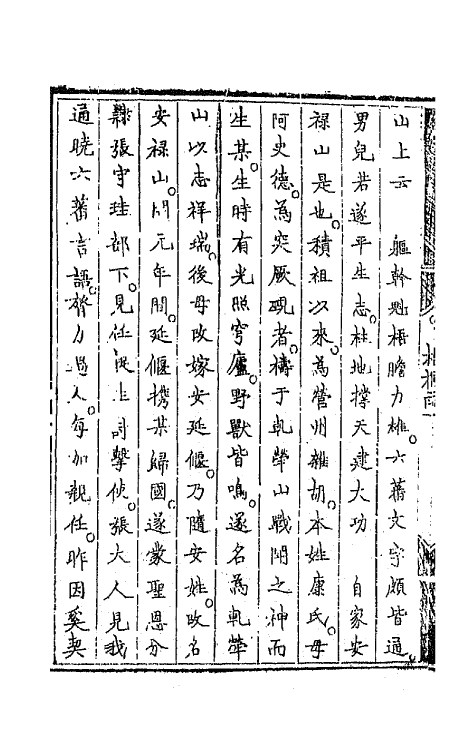 山上云 軀幹魁梧膽力雄。六蕃文字頗皆通
男兒若遂平生志。柱地撑天建大功 自家安
祿山是也。積祖以來。為營州雜胡。本姓康氏。母
阿史德。為突厥覡者。禱于軋犖山戰鬪之神而
生某。生時有光照穹廬。野獸皆鳴。遂名為軋犖
山以志祥瑞。後母改嫁安延偃。乃隨安姓。改名
安祿山。開元年間。延偃携某歸國。遂蒙聖恩分
隷張守珪部下。見任捉生討擊使。張大人見我
通曉六蕃言語。膂力過人。每加親任。昨因奚契
梧桐雨